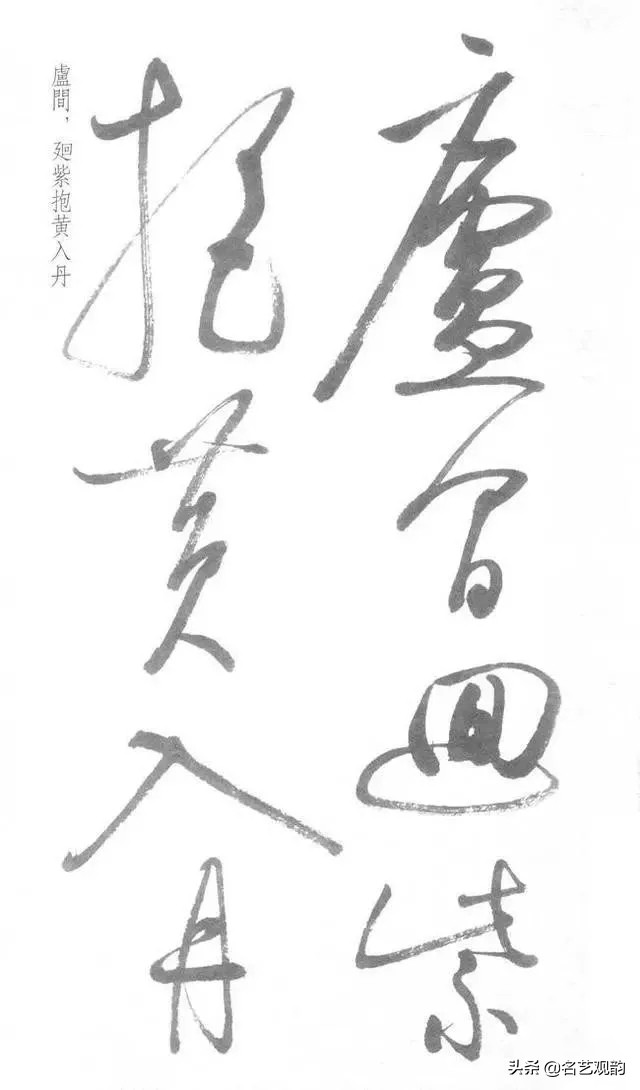 廬間迴紫
抱黄入丹
盧間，廻紫抱黄入丹
头条 @名艺观韵